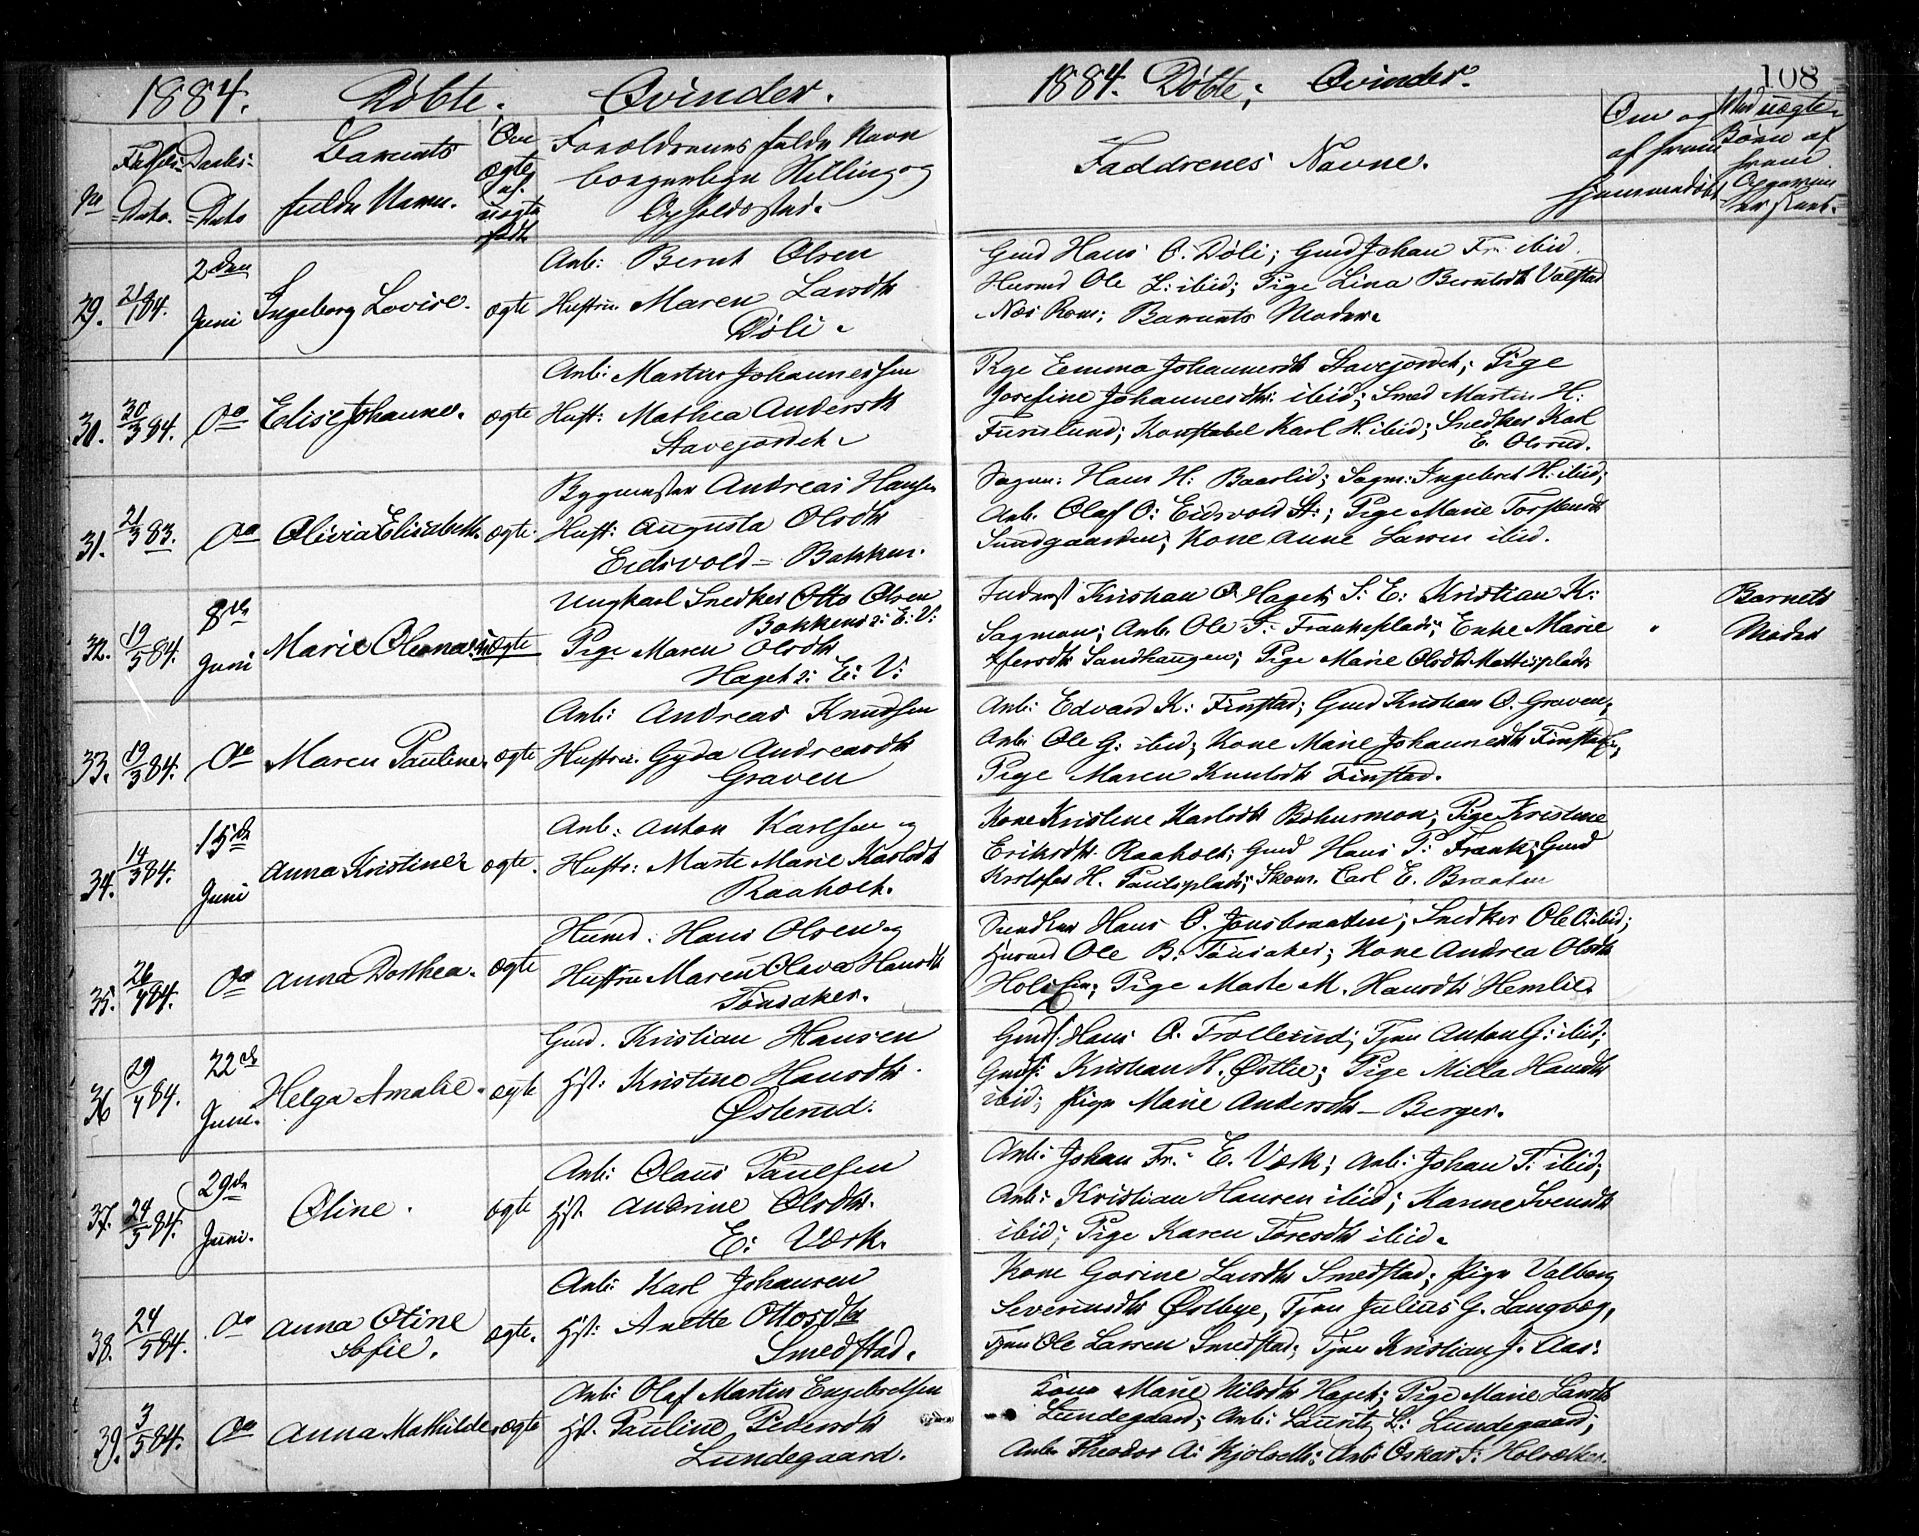 1884. Döbte. Qvinder.
No
Födsels-
Dato.
Daabs-
Dato
Barnets
fulde Navn.
Om
ægte
el.
uægte
födt
Forældrenes fulde Navn
borgerlige Stilling og
Opholdssted.
29. 21/1 84. 2den Juni Ingeborg Lovise. ægte
Arb: Bernt Olsen
Hustru Maren Larsdtr
Döli.
30. 30/3 84. Do Elise Johanne. ægte
Arb: Martin Johannessen
Hust: Mathea Andersdtr
Stavejordet.
31. 21/3 83. Do Olivia Elisabeth. ægte.
Bygmester Andreas Hansen
Hust: Augusta Olsdtr
Eidsvold-Bakken.
32. 19/5 84. 8de Juni Marie Oleana. uægte
Ungkarl Snedker Otto Olsen
Bakken 2: E: V:
Pige Maren Olsdtr
Haget 2: E: V:
33. 19/3 84. Do Maren Pauline. ægte
Arb: Andreas Knudsen
Hustru. Gyda Andreasdtr
Graven
34. 14/3 84. 15de Juni Anna Kristine ægte.
Arb: Anton Karlsen og
Hustr: Marte Marie Karlsdtr
Raaholt.
35. 26/4 84. Do Anna Dorthea. ægte
Husmd. Hans Olsen og
Hustru Maren Olava Hansdtr
Tönsaker.
36 29/4 84. 22de Juni. Helga Amalie. ægte
Gmd. Kristian Hansen
Hst: Kristine Hansdtr.
Østerud.
37. 24/5 84. 29de Juni. Oline. ægte
Arb: Olaus Paulsen
Hst. Andrine Olsdtr.
E: Værk.
38. 24/5 84. Do Anna Otine
Sofie. ægte.
Arb: Karl Johansen
Hst: Anette Ottosdtr
Smedstad.
39. 3/5 84. Do Anna Mathilde. ægte
Arb: Olaf Martin Engebretsen
Hst. Pauline Pedersdtr
Lundegaard.
1884. Döbte; Qvinder. 108
Faddrenes Navne.
Om og
af hvem
hjemmedöbt
Ved uægte
Börn af
hvem
Opgaven
er skeet.
Gmd Hans O. Döli; Gmd Johan Fr. ibid.
Husmd Ole L: ibid; Pige Lina Berntsdtr Valstad
Næs Rom: Barnets Moder.
Pige Emma Johannesdtr Stavejordet; Pige
Josefine Johannesdtr: ibid; Smed Martin H:
Furulund; Konstabel Karl H. ibid; Snedker Karl
E. Olsrud.
Sagm: Hans H: Baarlid; Sagm: Ingebret H: ibid;
Arb. Olaf O: Eidsvold St:; Pige Marie Torstensdtr
Sundgaarden; Kone Anne Larsen ibid.
Inderst Kristian O. Haget S: E: Kristian K:
Sagmoen; Arb. Ole T: Frankeplads; Enke Marie
Sandhaugen; Pige Marie Olsdtr Mattisplads
Barnets
Moder
Arb: Edvard K: Finstad; Gmd Kristian O. Graven;
Arb. Ole G: ibid; Kone Marie Johannesdtr Finstad;
Pige Maren Knudsdtr Finstad.
Kone Kristine Karlsdtr Pige Kristine
Eriksdtr. Raaholt; Gmd Hans P: Frank; Gmd
Kristofer H. Paulsplads; Skom. Carl E. Braaten
Snedker Hans O. Jonsbraaten; Snedker Ole O. ibid;
Husmd Ole B. Tönsaker; Kone Andrea Olsdtr
Pige Marte M. Hansdtr Hemlie
Gmds. Hans O. Trollerud; Tjen Anton G: ibid;
Gmds: Kristian H. Østlie; Pige Milla Hansdtr
ibid; Pige Marie Andersdtr-Berger.
Arb: Johan Fr: E. Værk; Arb: Johan T: ibid;
Arb: Kristian Hansen ibid; Hanne Svensdtr
ibid; Pige Karen Toresdtr ibid.
Kone Gorine Larsdtr Smedstad; Pige Valborg
Severinsdtr Østbye, Tjen Julius G. Langvæg,
Tjen Ole Larsen Smedstad; Tjen Kristian J. Aas:
Kone Marie Nilsdtr Haget; Pige Marie Larsdtr
Lundegaard; Arb: Lauritz L: Lundegaard;
Arb. Theodor A: Arb: Oskar